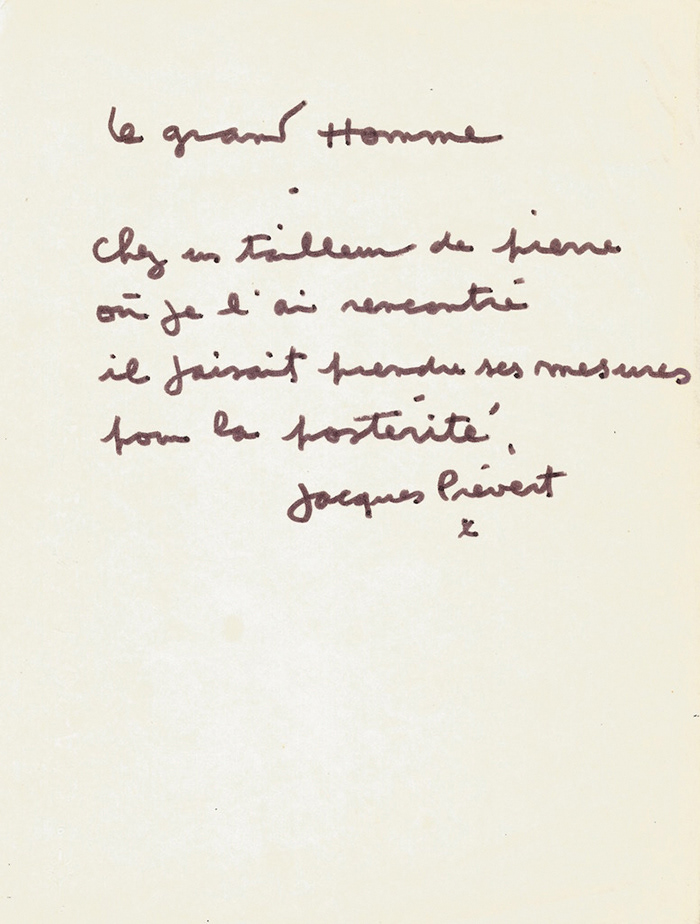 Le grand Homme
.
Chez un tailleur de pierre
où je l'ai rencontré
il faisait prendre ses mesures
pour la postérité.
Jacques Prévert
x